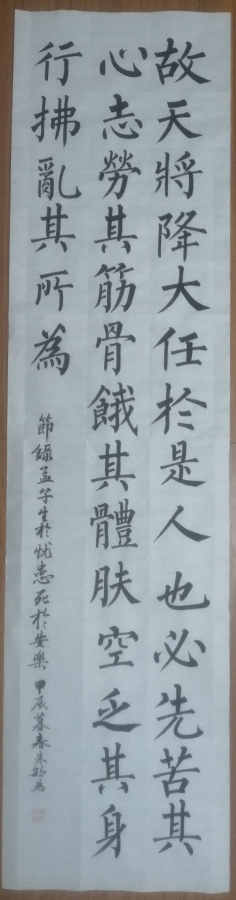 故天將降大任於是人也必先苦其
心志勞其筋骨餓其體肤空乏其身
行拂亂其所為
節錄孟子生於忧患死於安樂 甲辰暮春朱